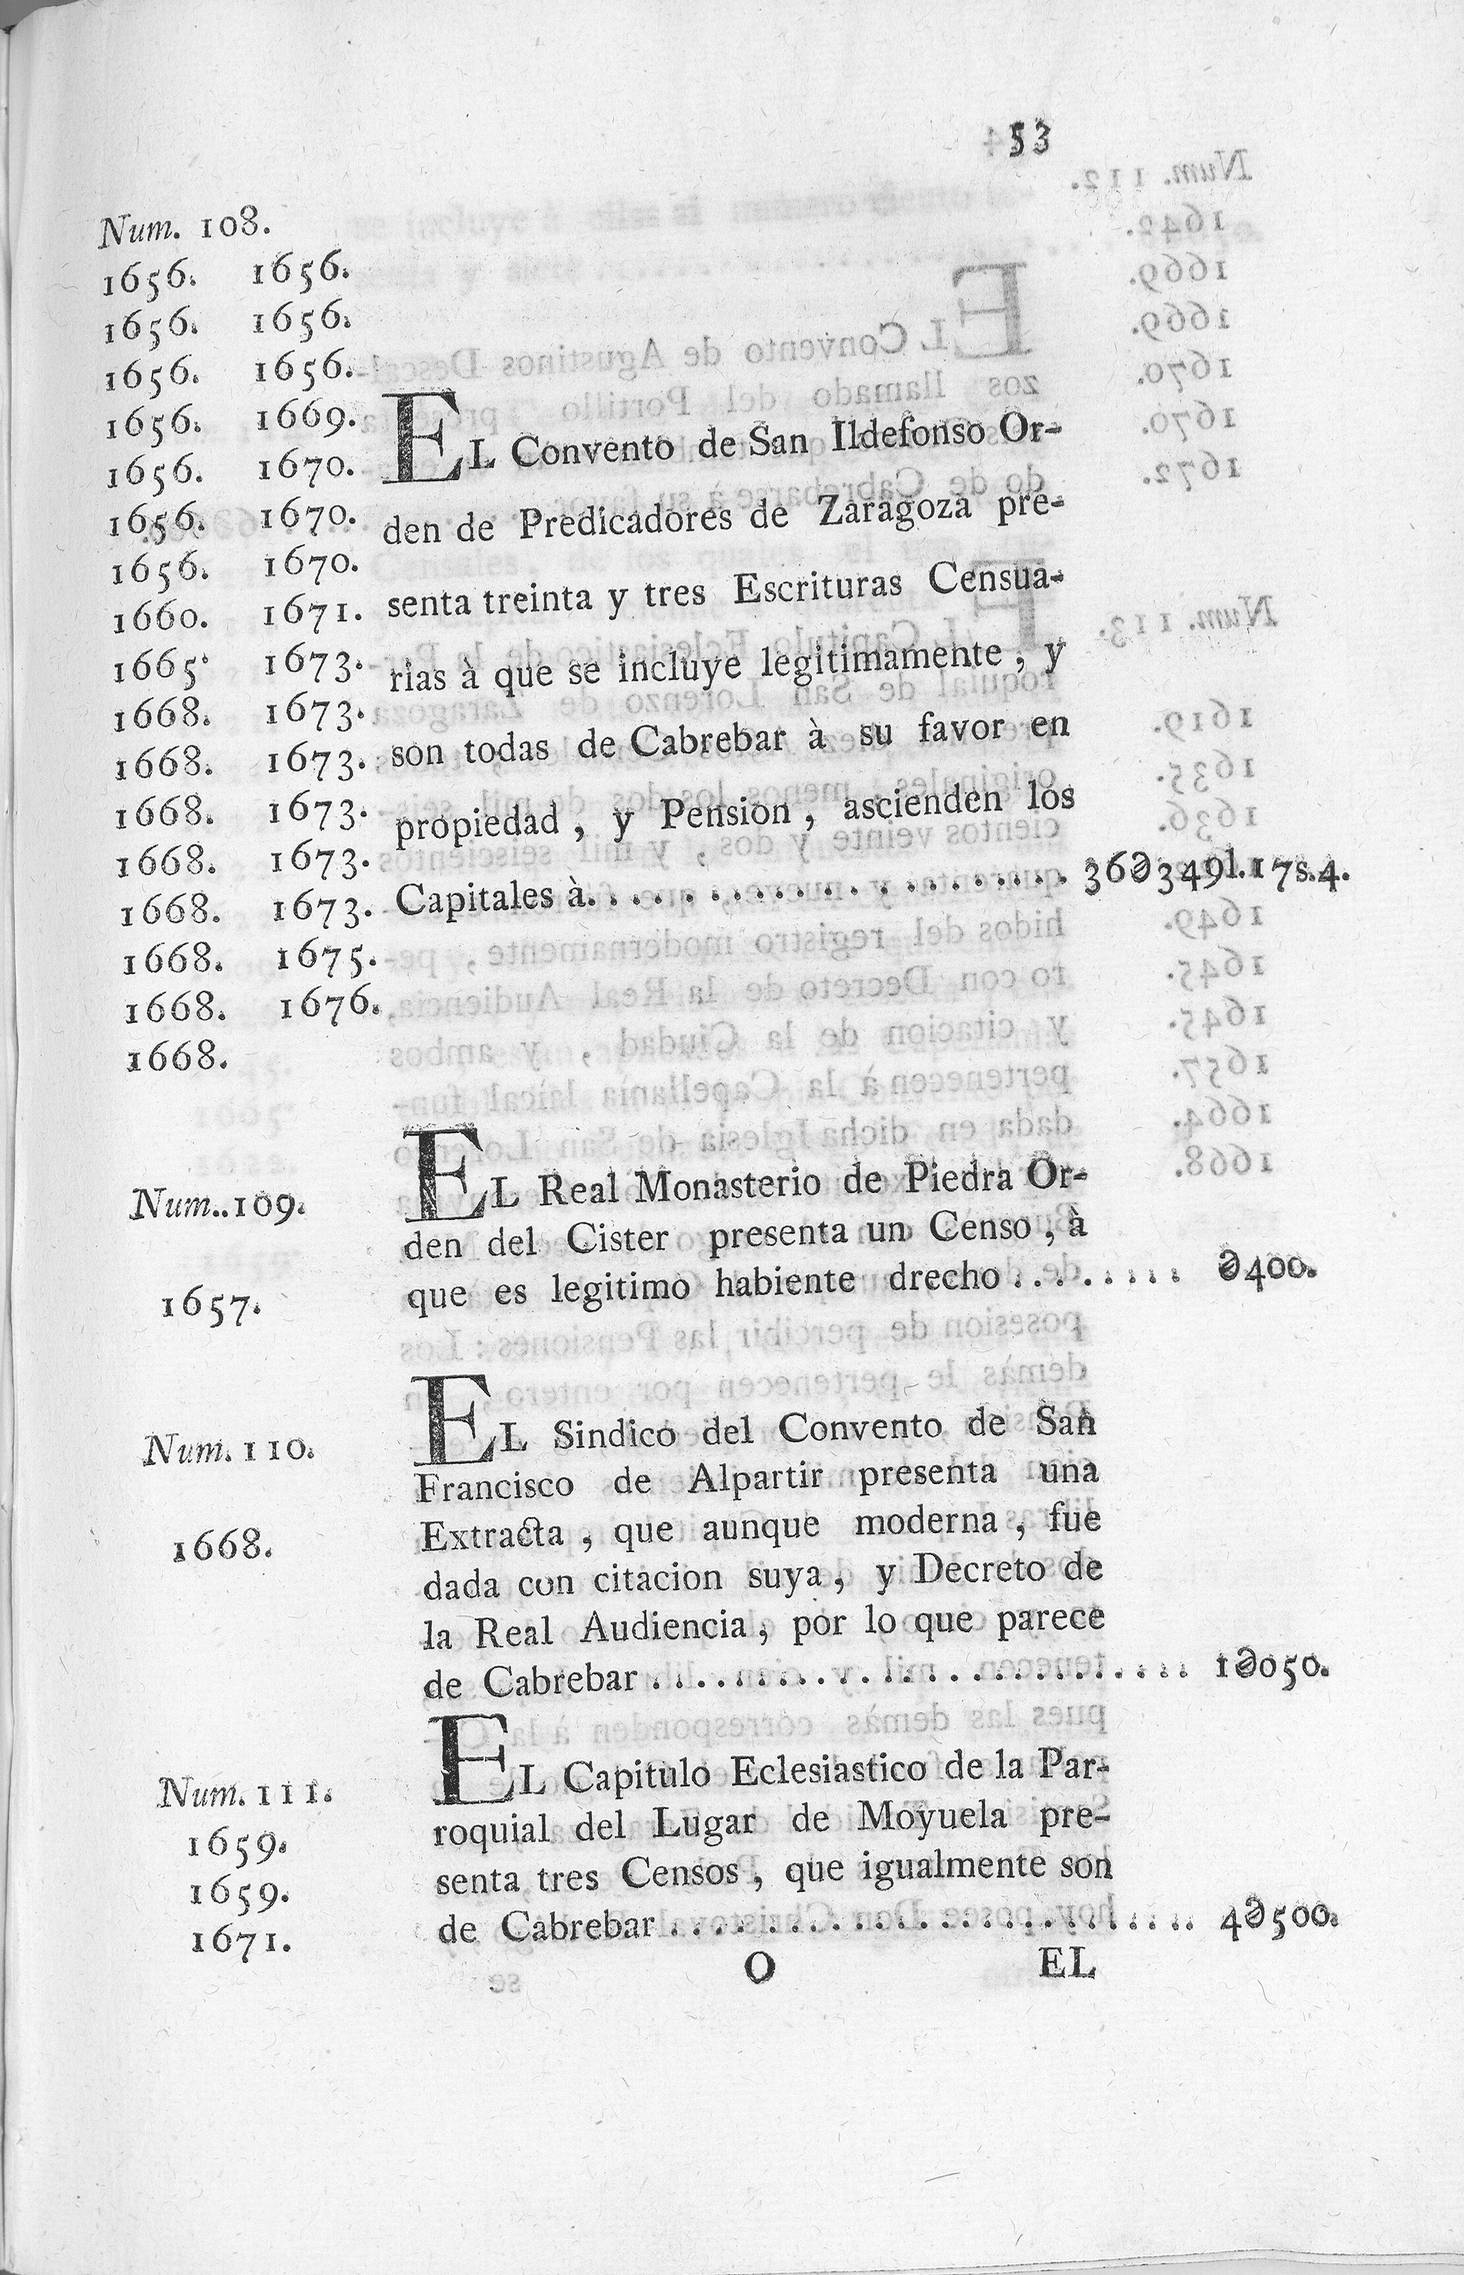 53
Num. 108.
1656. 1656.
1656. 1656.
1656. 1656.
1656. 1669.
1656. 1670.
1656. 1670.
1656. 1670.
1660. 1671.
1665. 1673.
1668. 1673.
1668. 1673.
1668. 1673.
1668. 1673.
1668. 1673.
1668. 1675.
1668. 1676.
1668.
EL Convento de San Ildefonso Or-
den de Predicadores de Zaragoza pre-
senta treinta y tres Escrituras Censua-
rias à que se incluye legitimamente, y
son todas de Cabrebar à su favor en
propiedad, y Pension, ascienden los
Capitales à........................ 36Ə349l.17s.4.
Num..109.
1657.
EL Real Monasterio de Piedra Or-
den del Cister presenta un Censo, à
que es legitimo habiente drecho......... Ə400.
Num. 110.
1668.
EL Sindico del Convento de San
Francisco de Alpartir presenta una
Extracta, que aunque moderna, fue
dada con citacion suya, y Decreto de
la Real Audiencia, por lo que parece
de Cabrebar........................ 1Ə050.
Num. 111.
1659.
1659.
1671.
EL Capitulo Eclesiastico de la Par-
roquial del Lugar de Moyuela pre-
senta tres Censos, que igualmente son
de Cabrebar........................ 4Ə500.
O EL